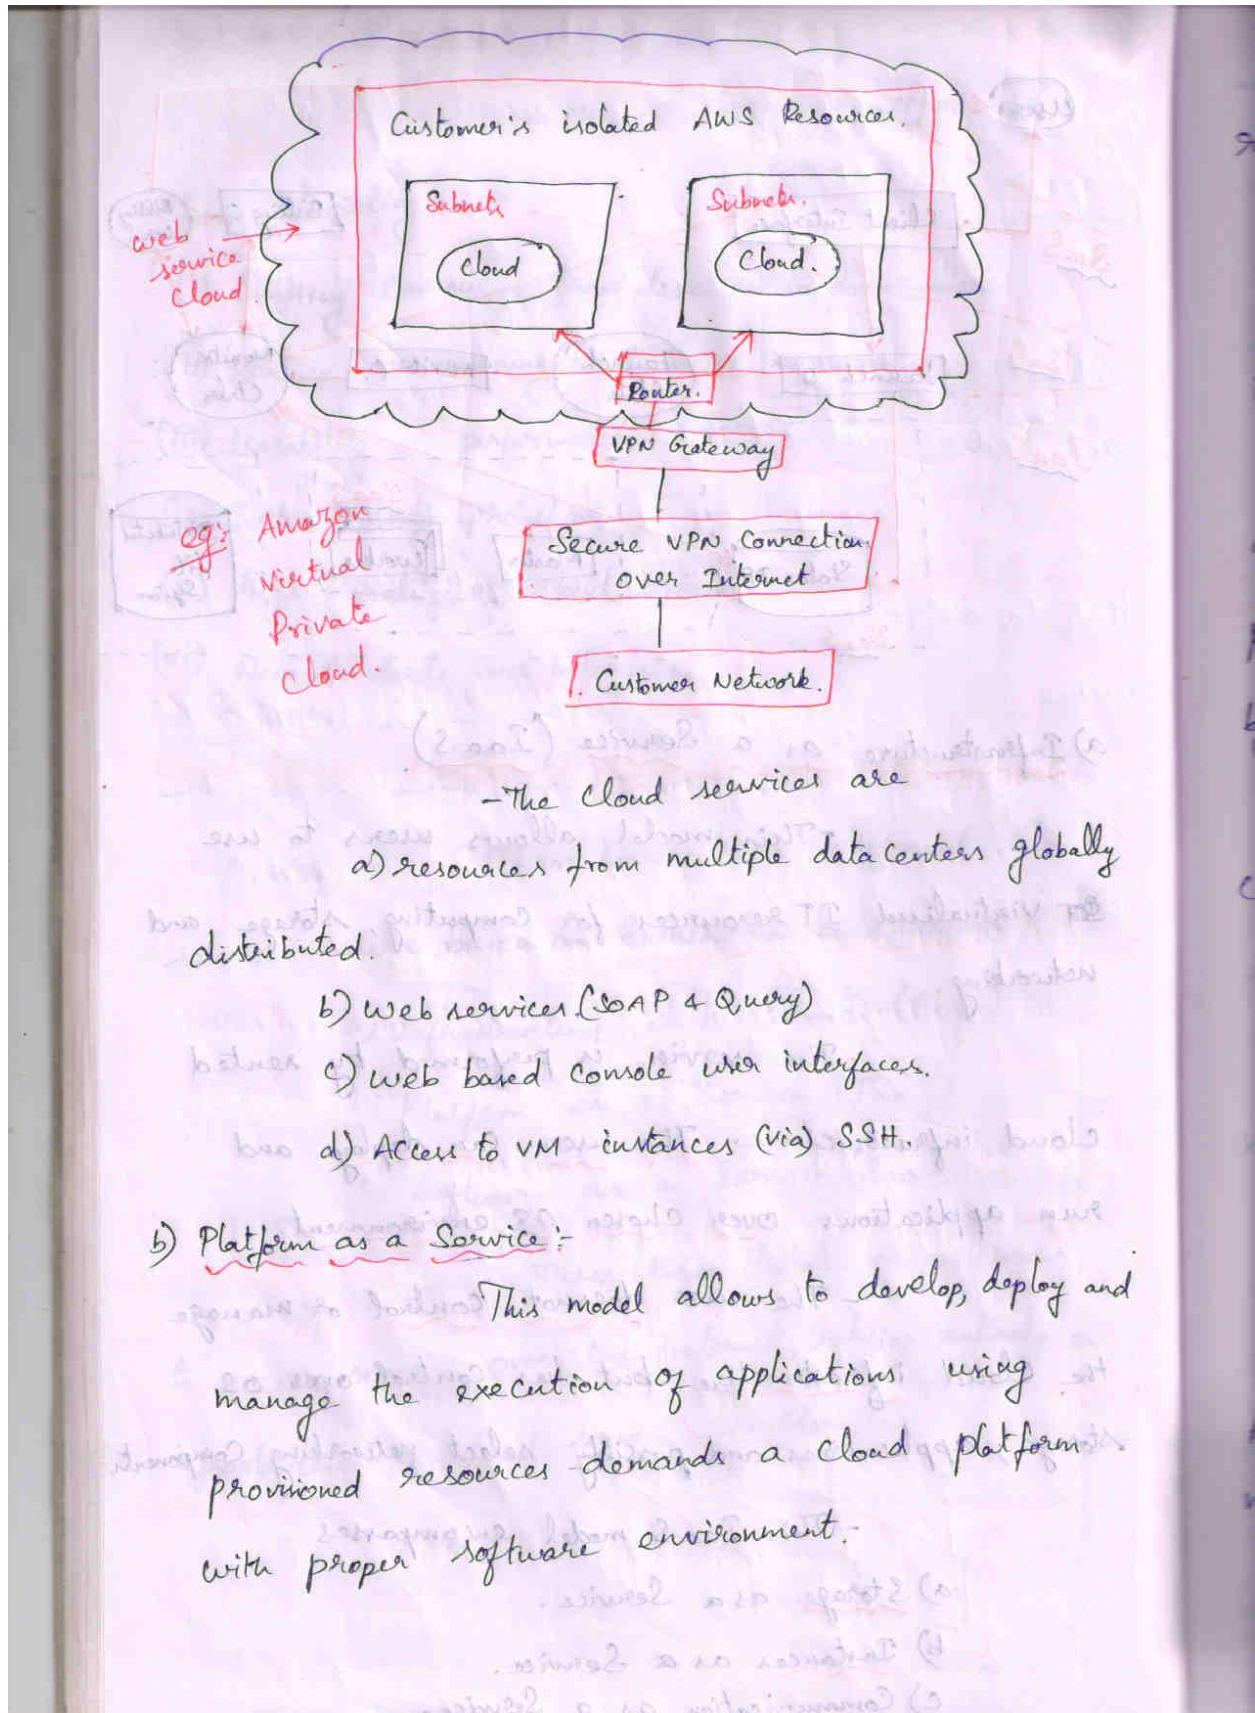 Customer's isolated AWS Resources.
Subnets
Subnets.
web
service
cloud.
Cloud
Cloud.
Router.
VPN Gateway
eg: Amazon
Virtual
Private
Cloud.
Secure VPN Connection
over Internet
Customer Network.
- The Cloud services are
a) resources from multiple data centers globally
distributed.
b) Web services (SOAP & Query)
c) web based console user interfaces.
d) Access to VM instances (via) SSH.
b) Platform as a Service :-
This model allows to develop, deploy and
manage the execution of applications using
provisioned resources demands a cloud platform
with proper software environment.